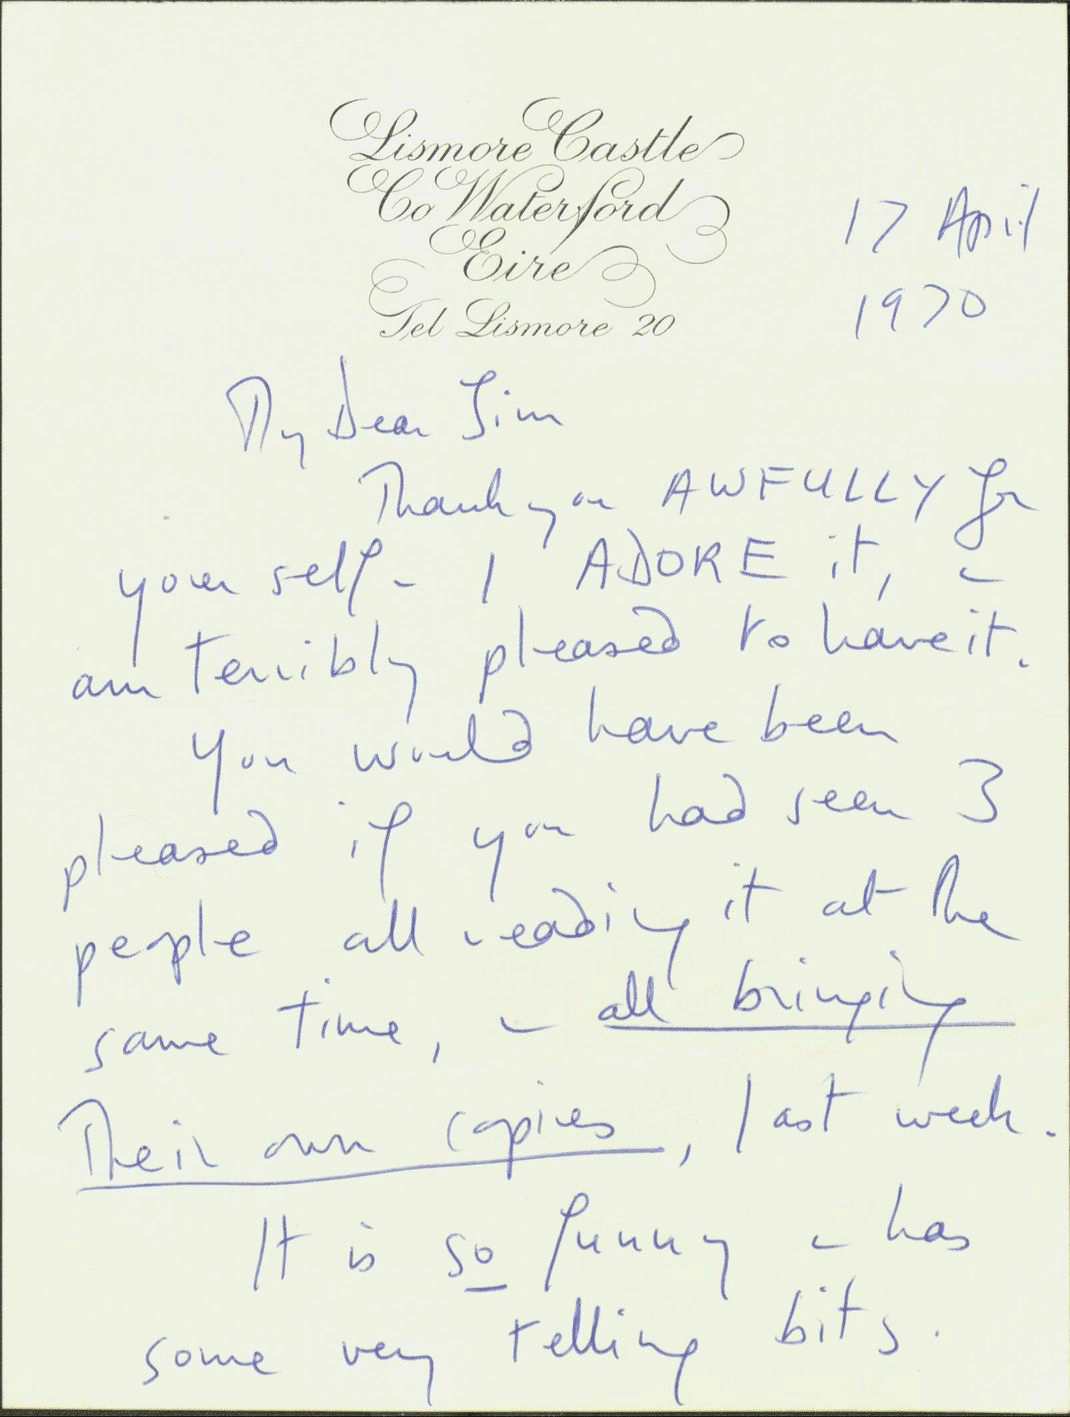 Lismore Castle
Co Waterford
Eire
Tel Lismore 20
17 April
1970
My Dear Jim
Thank you AWFULLY for
your self - I ADORE it, &
am terribly pleased to have it.
You would have been
pleased if you had seen 3
people all reading it at the
same time, & all bringing
their own copies, last week.
It is so funny & has
some very telling bits.